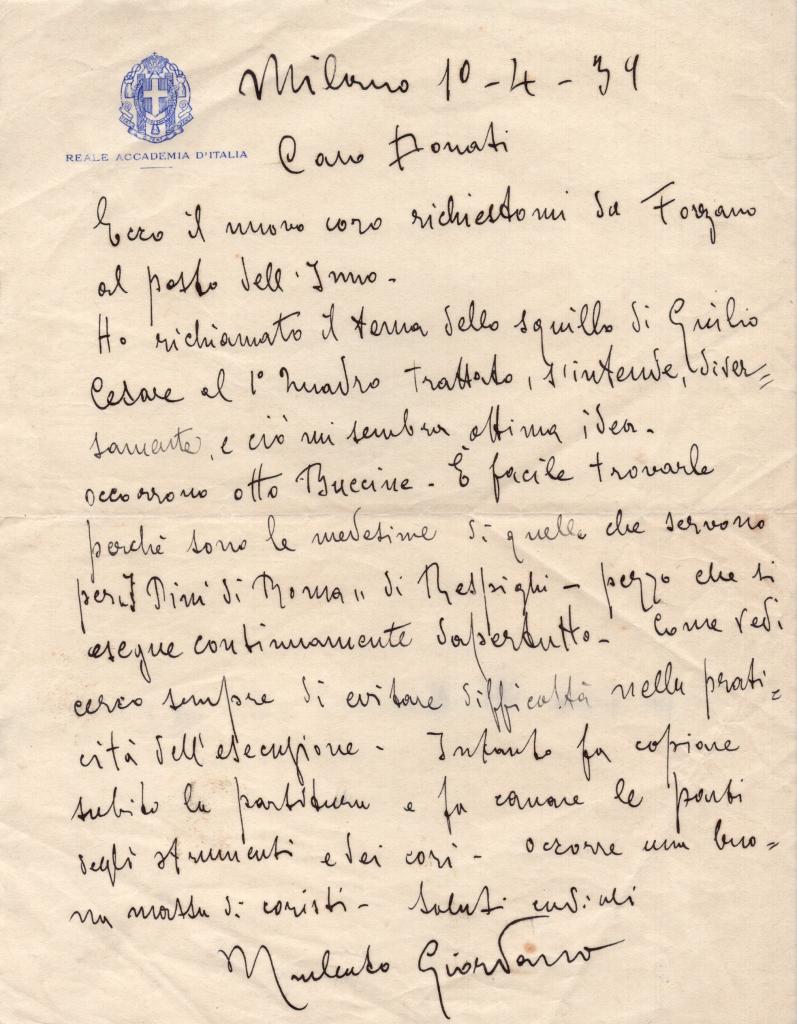 Milano 10-4-39
REALE ACCADEMIA D'ITALIA
Caro Donati
Ecco il nuovo coro richiestomi da Forzano
al posto dell'Inno.
Ho richiamato il tema dello squillo di Giulio
Cesare al 1° Quadro trattato, s'intende, diver=
samente, e ciò mi sembra ottima idea.
occorrono otto Buccine. È facile trovarle
perchè sono le medesime di quelle che servono
per "I Pini di Roma" di Respighi - pezzo che si
esegue continuamente dapertutto. Come vedi
cerco sempre di evitare difficoltà nella prati=
cità dell'esecuzione. Intanto fa copiare
subito la partitura e fa cavare le parti
degli strumenti e dei cori - occorre una buo=
na massa di coristi - Saluti cordiali
Umberto Giordano